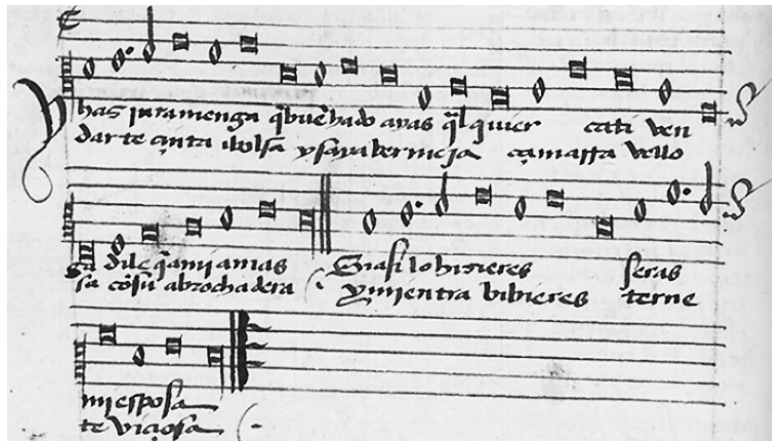 has juramenga q̄ buē hado ayas q̄l quier cati ven
darte çinta bolsa y sortija bermeja çamarra vello
ga dile q̄ ami amas
sa cōsu abrochadera
Si asi lo hizieres seras
y mientra bibieres terne
mi esposa
te viçiosa